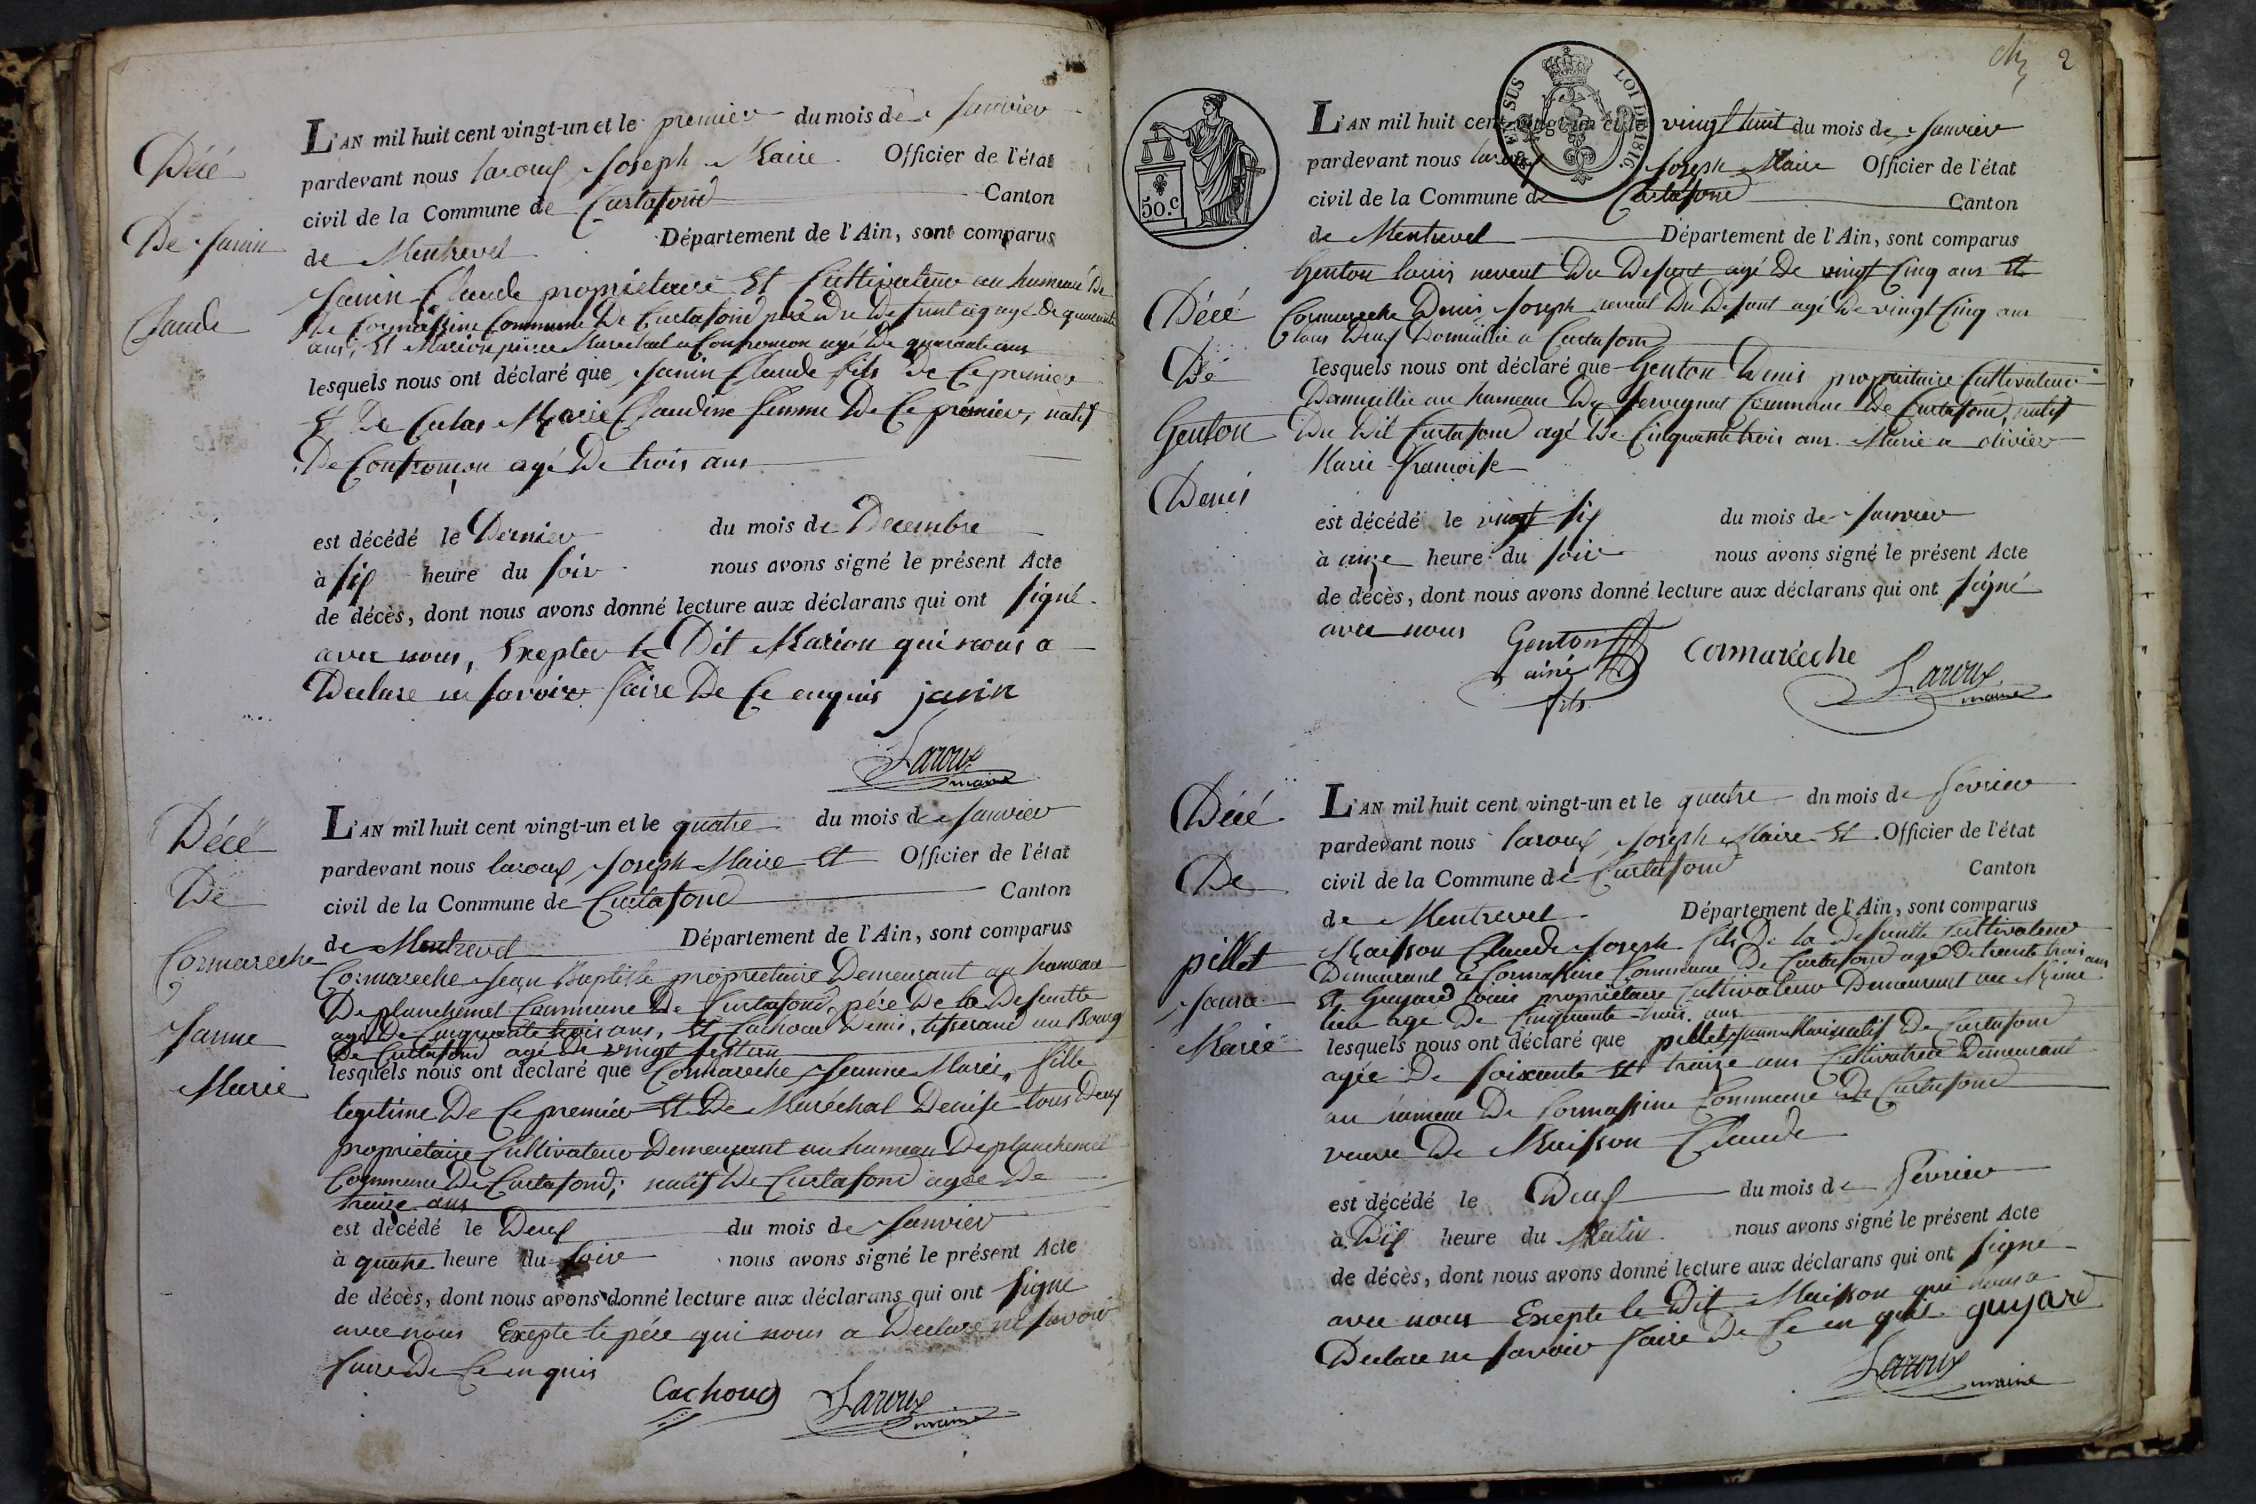 Décé
De Janin
Claude
L'AN mil huit cent vingt-un et le premier du mois de Janvier
pardevant nous laroux Joseph Maire Officier de l'état
civil de la Commune de Curtafond Canton
de Montrevel Département de l'Ain, sont comparus
Janin Claude proprietaire Et Cultivateur au hameau De
De Cormassine Commune De Curtafond père Du Defunt agé de quarante
ans, Et Marion pierre Marechal a Confrancon agé De quarante ans
lesquels nous ont déclaré que Janin Claude fils De Ce premier
Et De Marie Claudine femme De Ce premier, natif
De Confrancon agé De trois ans
est décédé le Dernier du mois de Decembre
à six heure du soir nous avons signé le présent Acte
de décès, dont nous avons donné lecture aux déclarans qui ont signé
avec nous, Exepter le Dit Marion qui nous a
Declare ne savoir faire De Ce enquis janin
Laroux
maire
Décé
De
Cormareche
Janne
Marie
L'AN mil huit cent vingt-un et le quatre du mois de Janvier
pardevant nous laroux Joseph Maire Et Officier de l'état
civil de la Commune de Curtafond Canton
de Montrevel Département de l'Ain, sont comparus
Cormareche Jean Baptiste proprietaire Demeurant au hameau
De planchemel Commune De Curtafond, père De la Defuntte
agé De Cinquante trois ans, Et Cachoux Denis, tisserand au Bourg
De Curtafond agé De vingt sept ans
lesquels nous ont déclaré que Cormareche Jeanne Marie, fille
legitime De Ce premier Et De Maréchal Denise tous Deux
proprietaire Cultivateur Demeurant au hameau De planchemel
Commune De Curtafond; natif De Curtafond agée De
traize ans
est décédé le Deux du mois de Janvier
à quatre heure du soir nous avons signé le présent Acte
de décès, dont nous avons donné lecture aux déclarans qui ont signe
avec nous Exepte le père qui nous a Declare ne savoir
faire De Ce enquis
Cachoux Laroux
maire
2
50.c
LOI DE 1816
L'AN mil huit cent vingt-un et le vingt huit du mois de Janvier
pardevant nous laroux Joseph Maire Officier de l'état
civil de la Commune de Curtafond Canton
de Montrevel Département de l'Ain, sont comparus
Décé
De
Genton
Denis
Genton louis neveut Du Defunt agé De vingt Cinq ans Et
Cormareche Denis Joseph neveut Du Defunt agé De vingt Cinq ans
tous Deux Domicillié a Curtafond
lesquels nous ont déclaré que Genton Denis propriétaire Cultivateur
Domicillié au hameau De Commune De Curtafond, natif
Du Dit Curtafond agé De Cinquante trois ans Marié a olivier
Marie françoise
est décédé le vingt six du mois de Janvier
à onze heure du soir nous avons signé le présent Acte
de décès, dont nous avons donné lecture aux déclarans qui ont signé
avec nous Genton
ainé
fils
cormarêche
Laroux
maire
Décé
De
pillet
Janne
Marie
L'AN mil huit cent vingt-un et le quatre dn mois de fevrier
pardevant nous laroux Joseph Maire Et Officier de l'état
civil de la Commune de Curtafond Canton
de Montrevel Département de l'Ain, sont comparus
Maisson Claude Joseph fils De la Defuntte Cultivateur
Demeurant a Cormassine Commune De Curtafond agé De trente trois ans
Et Guyard louis propriétaire Cultivateur Demeurant au Même
lieu agé De Cinquante trois ans
lesquels nous ont déclaré que pillet Janne Marie natif De Curtafond
agée De soixante Et traize ans Cultivatrice Demeurant
au hameau De Cormassine Commune De Curtafond
veuve De Maisson Claude
est décédé le Deux du mois de fevrier
à Dix heure du Matin nous avons signé le présent Acte
de décès, dont nous avons donné lecture aux déclarans qui ont signé
avec nous Exepte le Dit Maisson qui nous a
Declare ne savoir faire De Ce en quis guyard
Laroux
maire